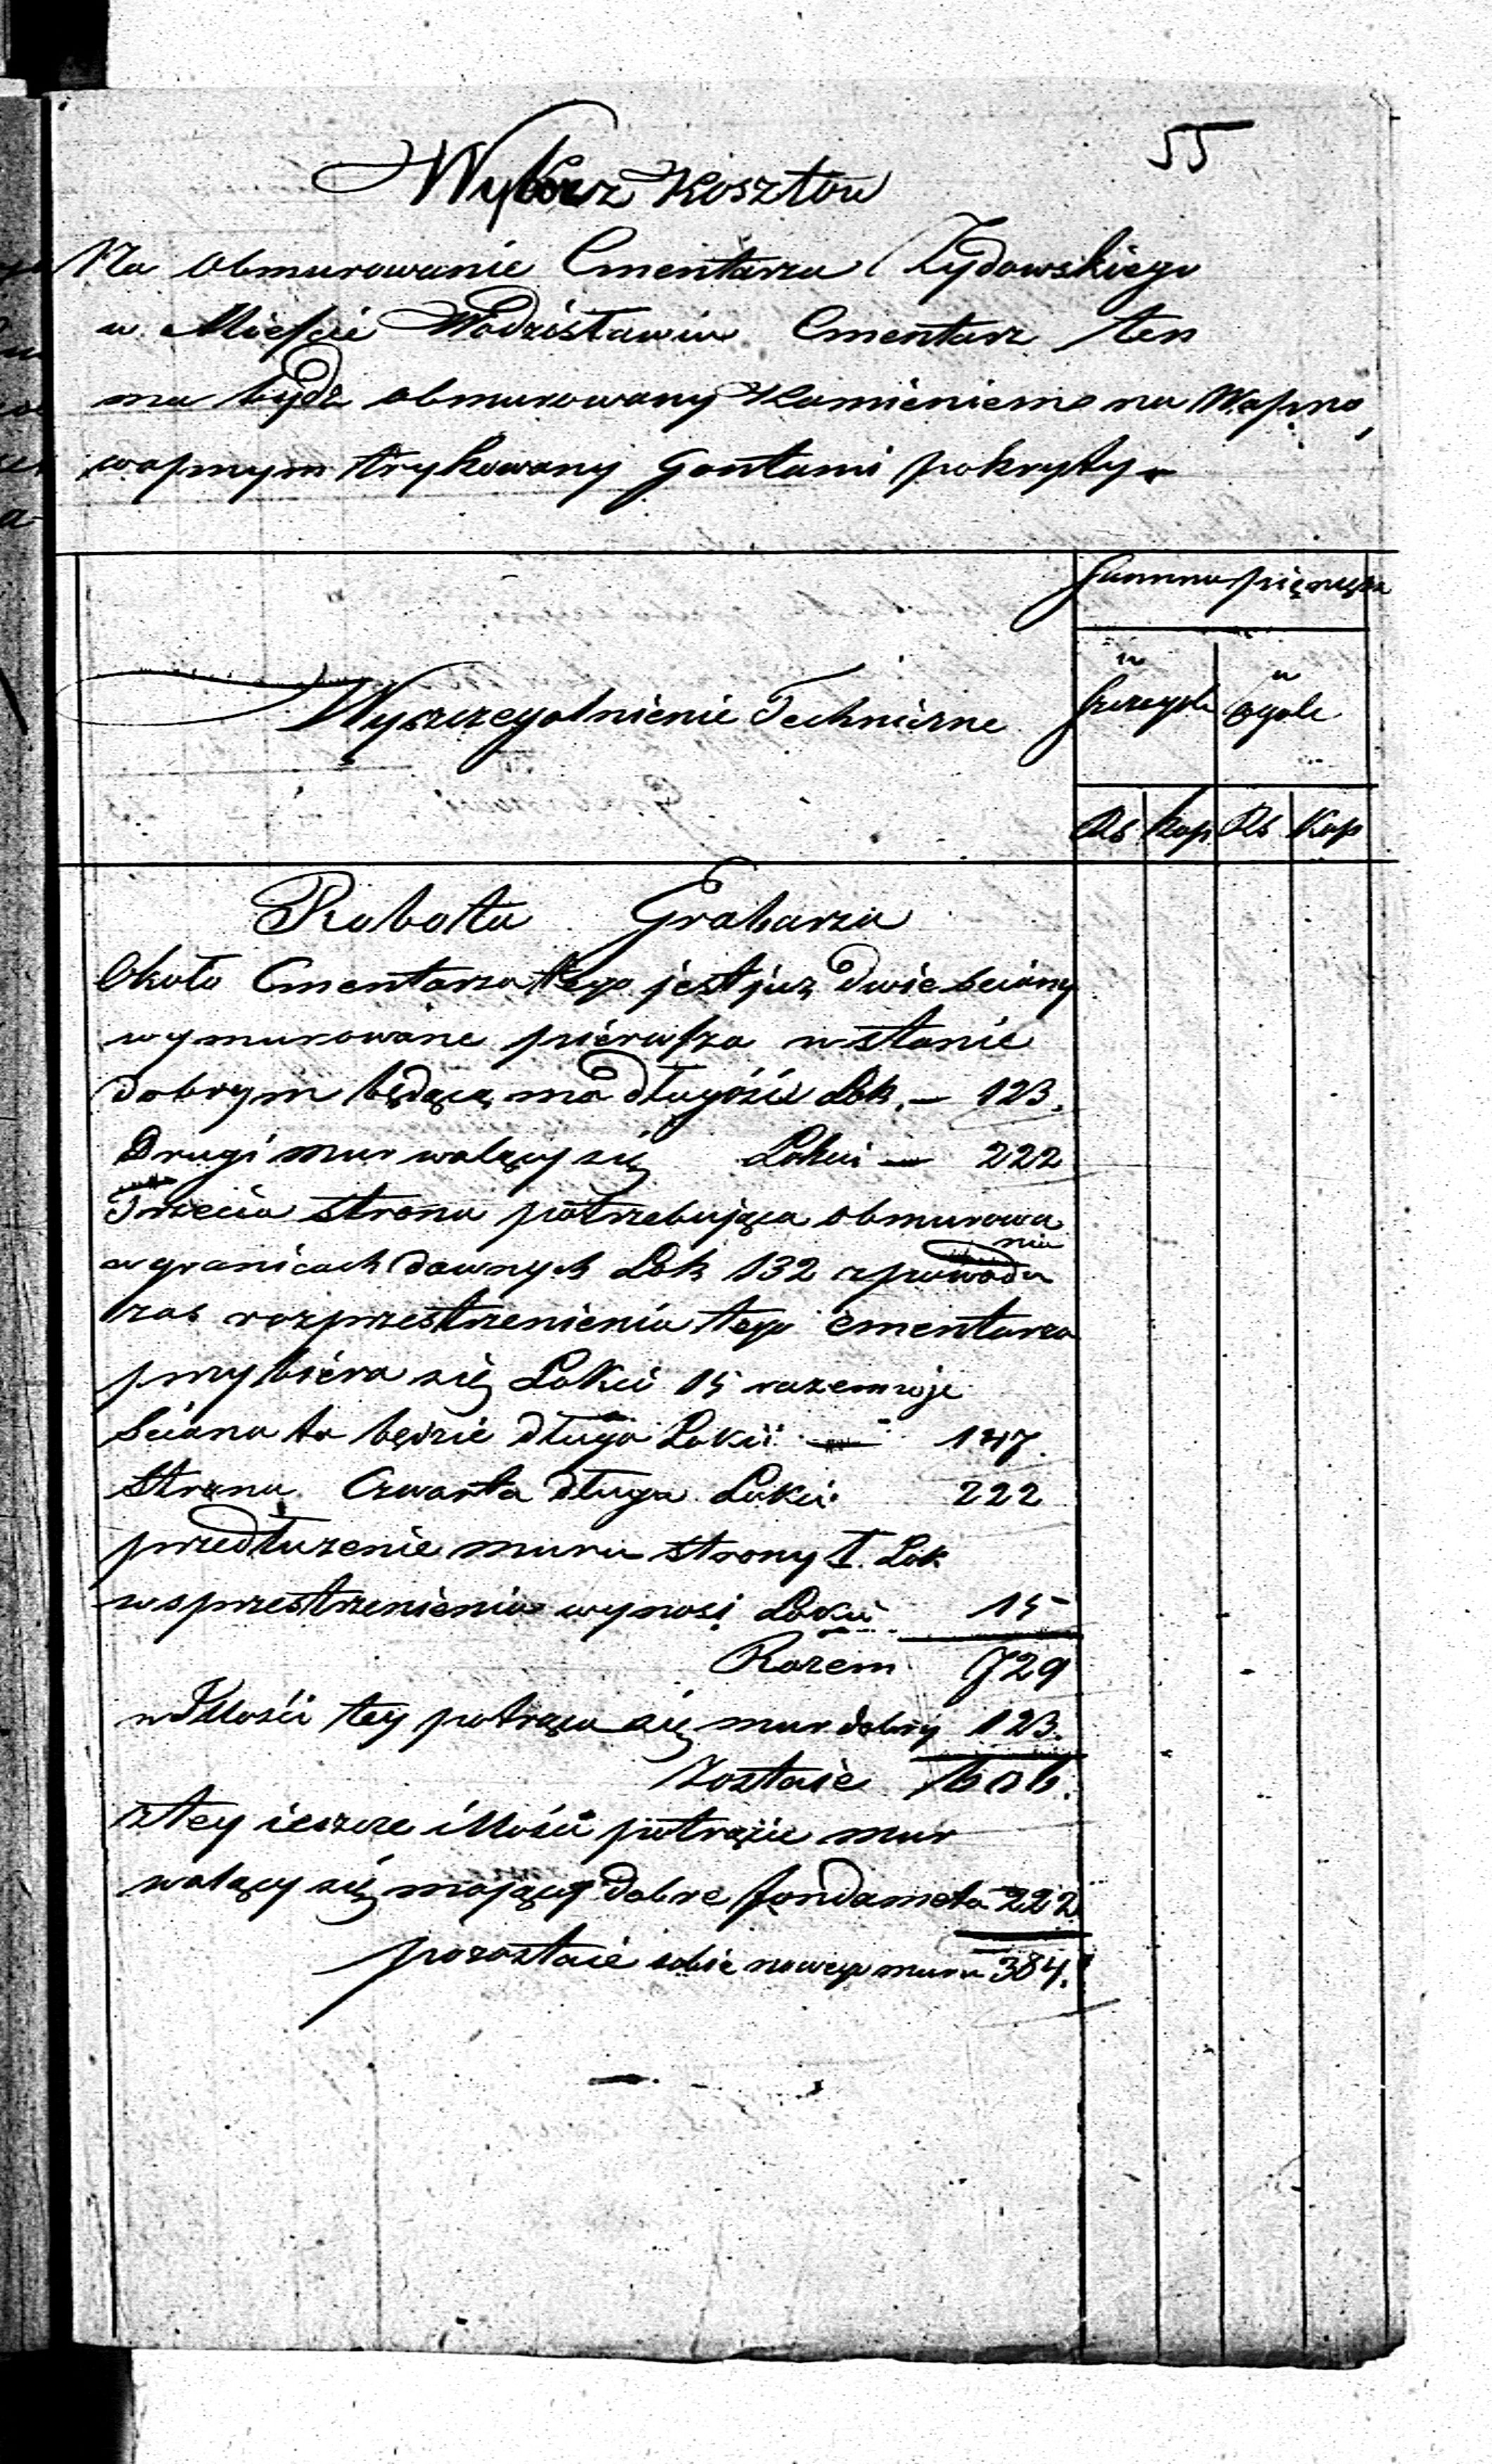 55
Wykaz Kosztów
Na obmurowanie Cmentarza Żydowskiego
w Mieście Wodzisławiu Cmentarz ten
ma bydź obmurowany Kamieniem na Wapno,
wapnym trykowany Gontami pokryty
Summa pieniężna
Wyszczegolnienie Techniczne
w
szczegole
w
ogole
Rs kop Rs Kop
Robota Grabarza
Około Cmentarza tego jest juz dwie sciany
wymurowane pierwsza w stanie
dobrym będąca ma długości Łok. – 123.
Drugi mur walący się Łokci – 222
Trzecia strona potrzebująca obmurowa
nia
w granicach dawnych Łok 132 z powodu
zas rozprzestrzenienia tego cmentarza
przybiera się Łokci 15 razem więc
Sciana ta będzie długa Łokci – 147.
Strona Czwarta długa Łokci 222
przedłuzenie muru strony I. Łok
w sprzestrzenieniu wynosi Łokci 15
Razem 729
w Illości tey potrąca się mur dobry 123.
Zostaie 606.
z tey ieszcze illości potrącić mur
walący się mający dobre fondameta 222
pozostaie sobie nowego muru 384.